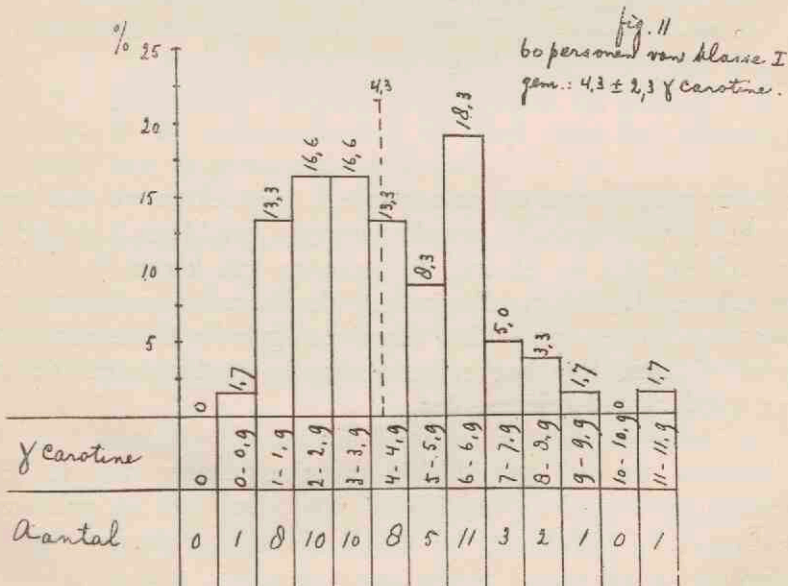 fig. 11
60 personen van klasse I
gem.: 4,3 ± 2,3 γ carotine.
%
25
20
15
10
5
4,3
0 1,7 13,3 16,6 16,6 13,3 8,3 18,3 5,0 3,3 1,7 0 1,7
γ carotine 0 0-0,9 1-1,9 2-2,9 3-3,9 4-4,9 5-5,9 6-6,9 7-7,9 8-8,9 9-9,9 10-10,9 11-11,9
Aantal 0 1 8 10 10 8 5 11 3 2 1 0 1